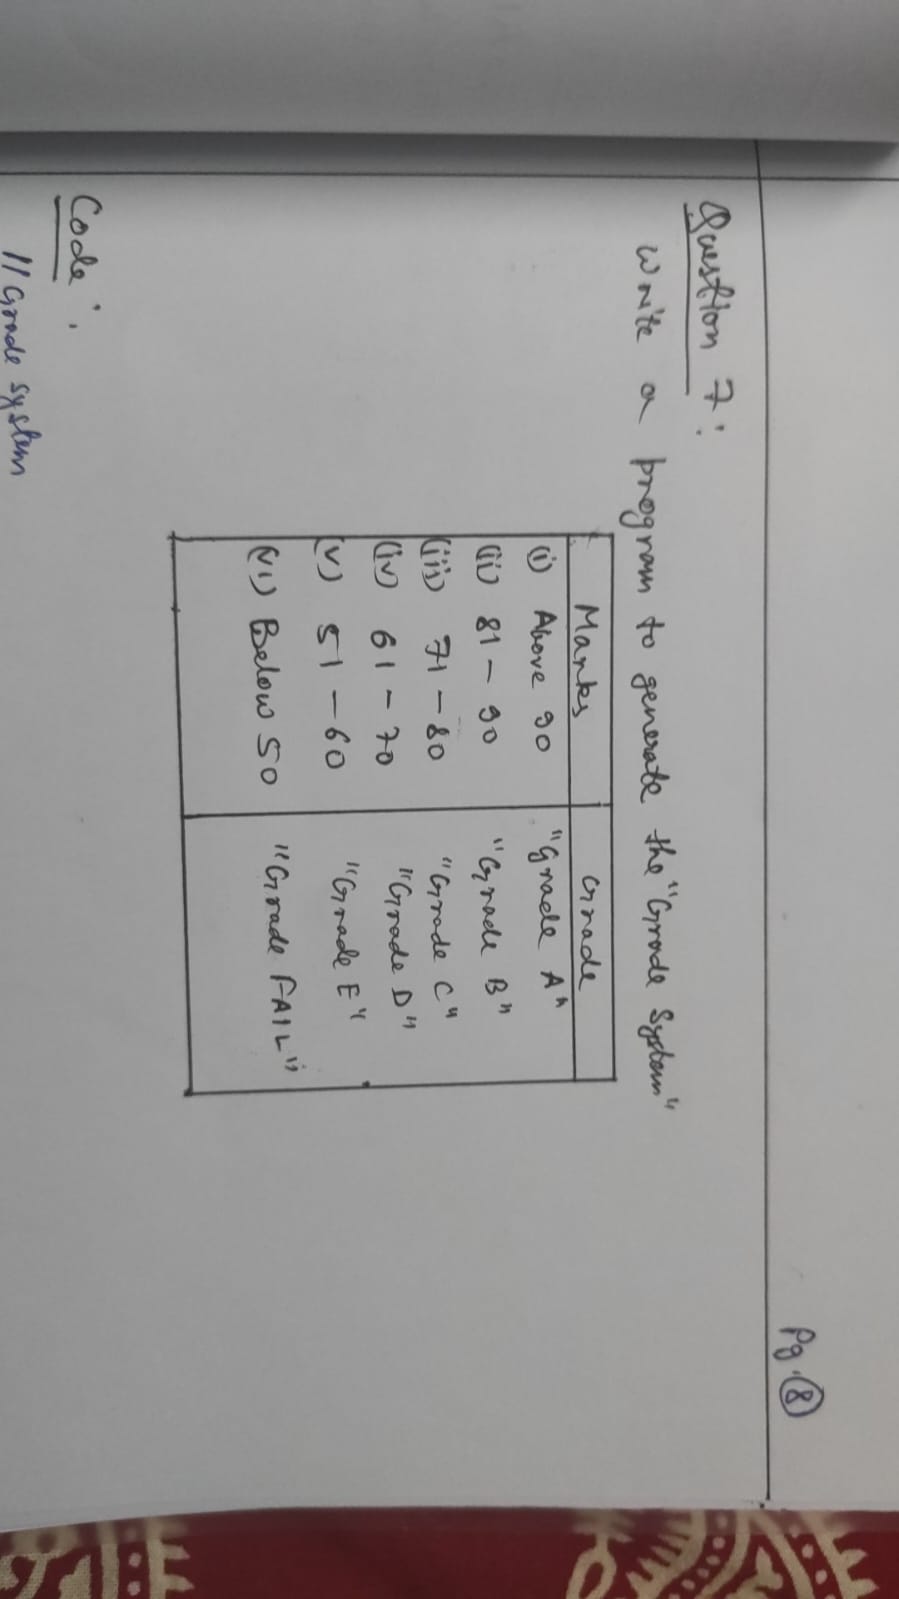 Pg. 8
Question 7:
Write a program to generate the "Grade System"
Marks Grade
(i) Above 90 "Grade A"
(ii) 81 - 90 "Grade B"
(iii) 71 - 80 "Grade C"
(iv) 61 - 70 "Grade D"
(v) 51 - 60 "Grade E"
(vi) Below 50 "Grade FAIL"
Code:
// Grade system